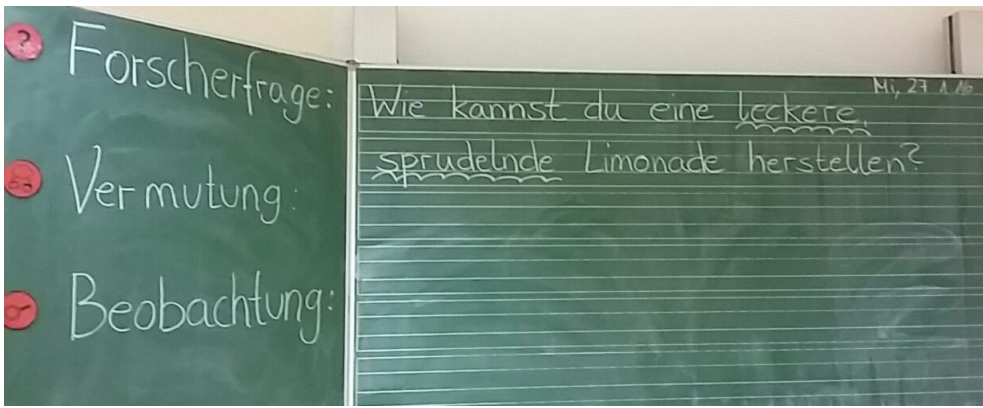 ?
Forscherfrage:
Vermutung:
Beobachtung:
Mi, 27 1.16
Wie kannst du eine leckere,
sprudelnde Limonade herstellen?